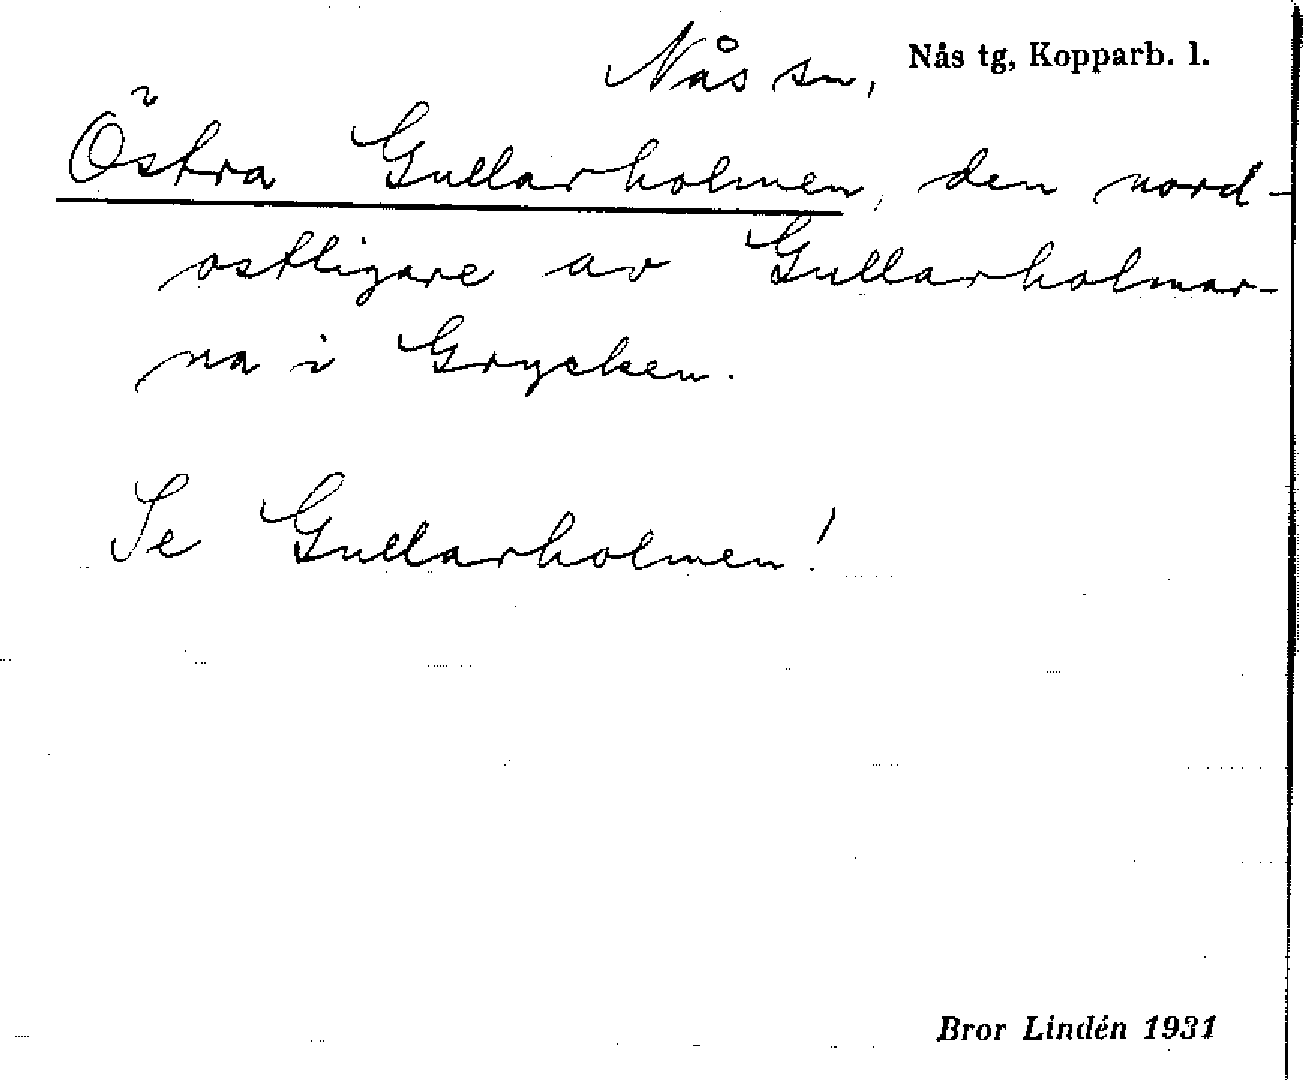 Nås sn, Nås tg, Kopparb. l.
Östra Gullarholmen, den nord-
ostligare av Gullarholmar-
na i Grycken.
Se Gullarholmen!
Bror Lindén 1931